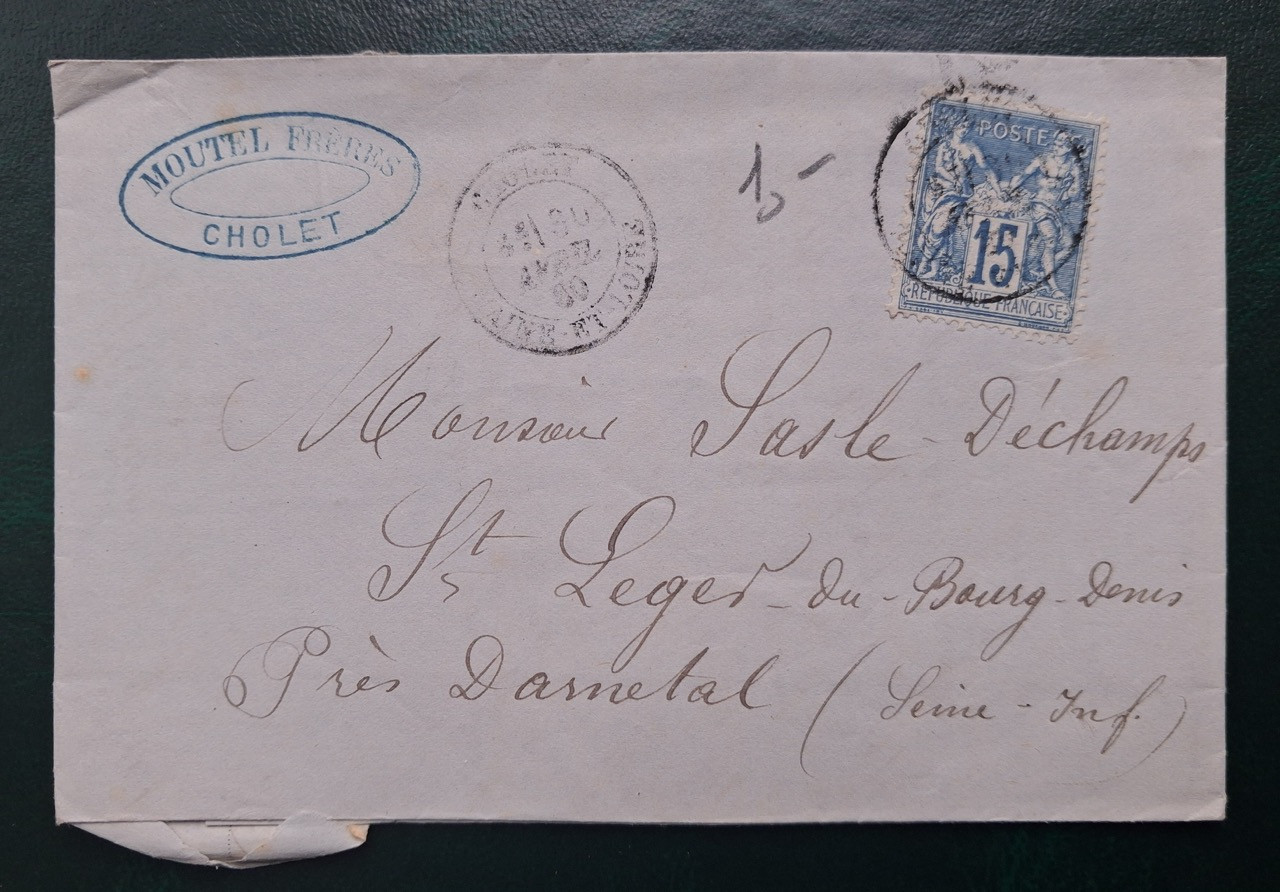 MOUTEL FRÈRES
CHOLET
CHOLET
AVRIL
80
MAINE-ET-LOIRE
POSTES
15
REPUBLIQUE FRANÇAISE
Monsieur Sasle-Déchamps
St Leger-du-Bourg-Denis
Près Darnetal (Seine-Inf.)